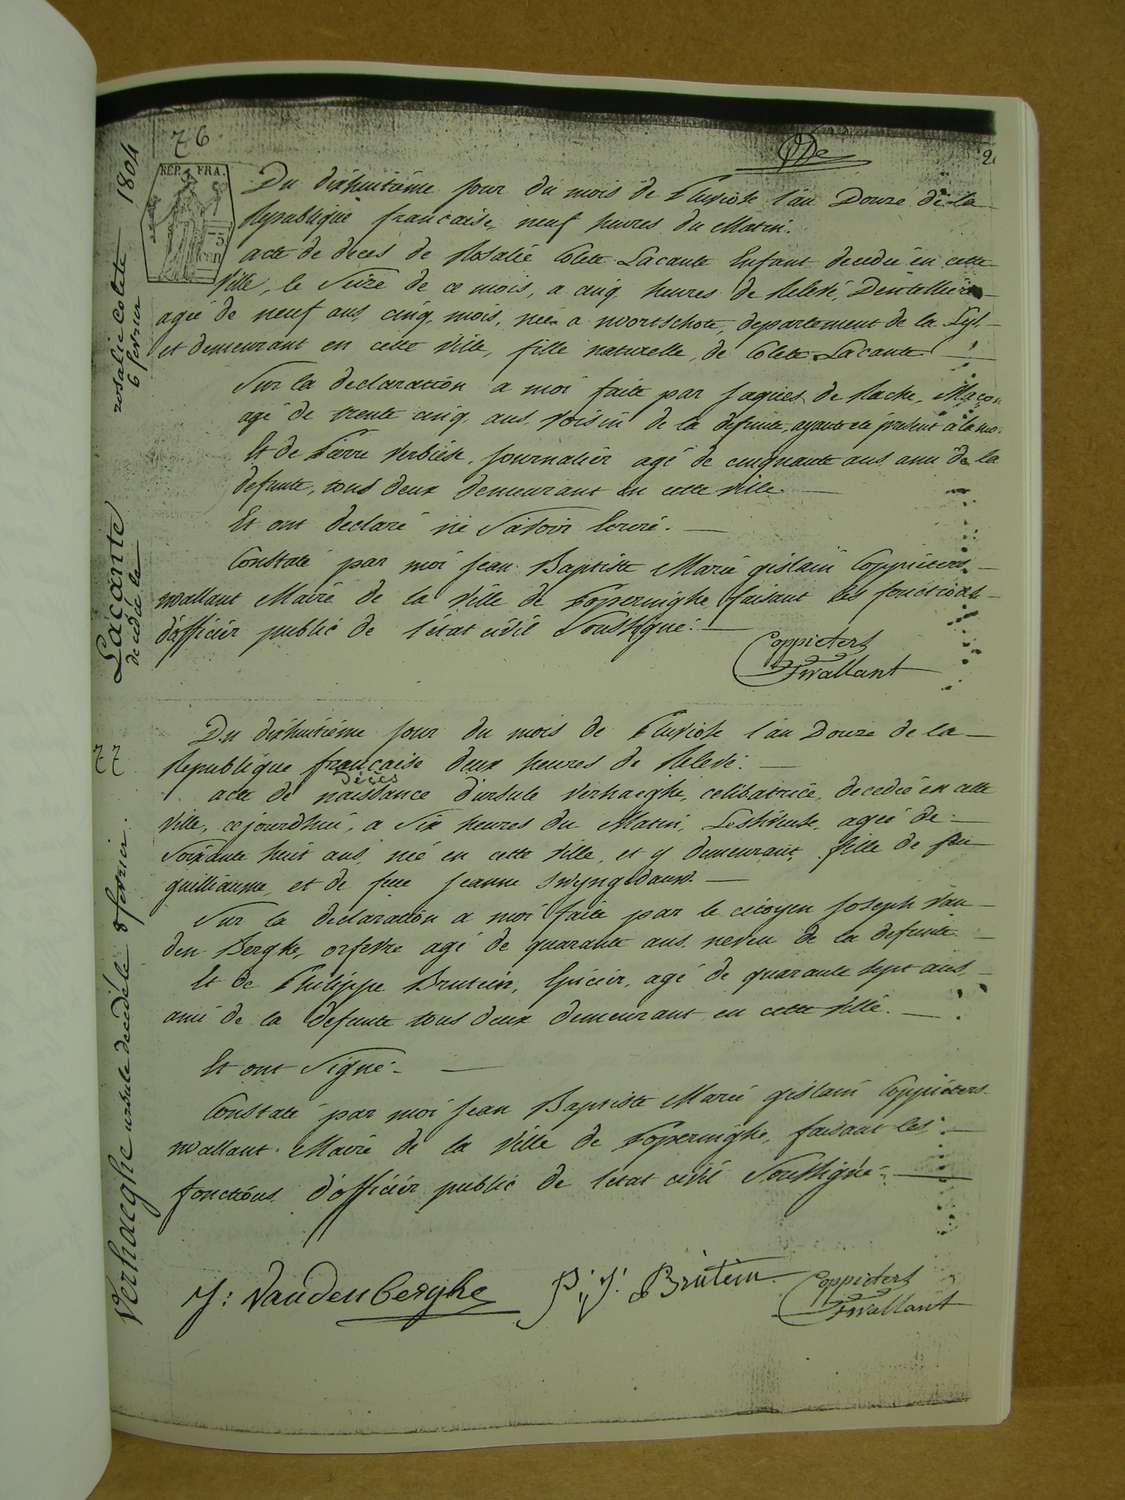 76
2
REP. FRA.
75
CEN
Du dixhuitième jour du mois de Pluviose l'an Douze de la
Republique francaise, neuf heures du Matin.
acte de deces de Rosalie Colette Lacante Enfant decedée en cette
Ville, le Seize de ce mois, a cinq heures de Relevé, Dentelliere
agée de neuf ans, cinq mois, née a noortschote, departement de la Lys
et demeurant en cette Ville, fille naturelle, de Colette Lacante
Sur la declaration a moi faite par Jaques de Rache, Maçon
agé de trente cinq ans, voisin de la defunte, ayant eté présent à la mo
Et de Pierre Verbieke, Journalier agé de cinquante ans ami de la
defunte, tous deux demeurant en cette Ville
Et ont declaré ne Savoir Ecrire.
Constaté par moi Jean Baptiste Marie gislain Coppieters
wallant Maire de la Ville de Poperinghe, faisant les fonctions
d'officier public de l'état civil Soussigné.
Coppieters
Jwallant
1804
rosalie colette
6 fevrier
Lacante
decedée la
77
Du dixhuitiéme jour du mois de Pluviose l'an Douze de la
Republique francaise deux heures de Relevé.
décès
acte de naissance d'ursule Verhaeghe, celibatrice, decedée en cette
Ville, cejourdhui, a Six heures du Matin, agée de
Soixante huit ans, née en cette Ville, et y demeurant, fille de feu
guilliaume et de feue Jeanne Swyngedauw.
Sur la declaration a moi faite par le citoyen Joseph Van
den Berghe, orfevre agé de quarante ans neveu de la defunte
Et de Philippe Brutein, Epicier, agé de quarante sept ans,
ami de la defunte tous deux demeurant en cette Ville.
Et ont Signé.
Constaté par moi Jean Baptiste Marie gislain Coppieters
wallant Maire de la Ville de Poperinghe, faisant les
fonctions d'officier public de l'état civil Soussigné.
Verhaeghe ursule decédéle 8 fevrier.
J: VandenBerghe
P: J: Brutein
Coppieters
Jwallant